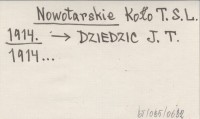 Nowotarskie Koło T.S.L.
1914. → DZIEDZIC J. T.
1914...